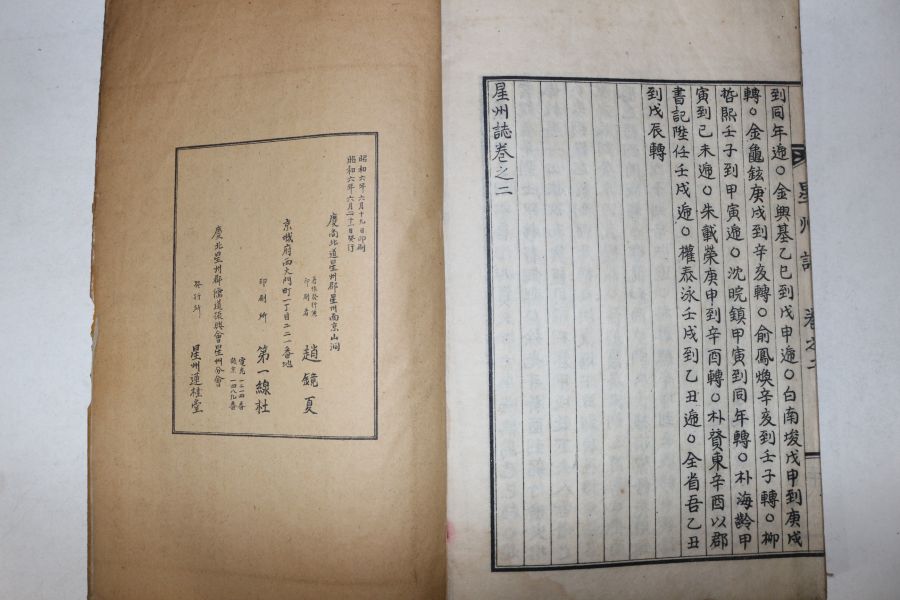 到同年遞○金興基乙巳到戊申遞○白南埈戊申到庚戌
轉○金龜鉉庚戌到辛亥轉○俞鳳煥辛亥到壬子轉○柳
晳熙壬子到甲寅遞○沈晥鎮甲寅到同年轉○朴海齡甲
寅到己未遞○朱載榮庚申到辛酉轉○朴賛東辛酉以郡
書記陞任壬戌遞○權泰泳壬戌到乙丑遞○全省吾乙丑
到戊辰轉
星州誌卷之二
星州誌 卷之二
昭和六年六月十九日印刷
昭和六年六月二十一日發行
慶尚北道星州郡星州面京山洞
著作發行兼
印刷者 趙鏡夏
京城府西大門町一丁目二二一番地
印刷所 第一線社
慶北星州郡儒道振興會星州分會
發行所 星州蓮桂堂